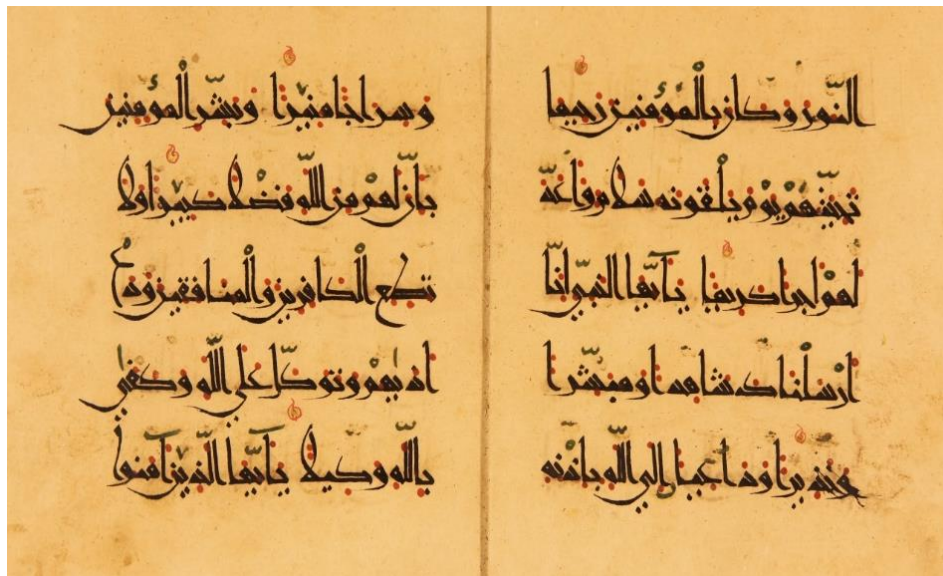 النُّورِ وَكَانَ بِالْمُؤْمِنِينَ رَحِيمًا
تَحِيَّتُهُمْ يَوْمَ يَلْقَوْنَهُ سَلَامٌ وَأَعَدَّ
لَهُمْ أَجْرًا كَرِيمًا يَأَيُّهَا النَّبِيُّ إِنَّا
أَرْسَلْنَاكَ شَاهِدًا وَمُبَشِّرًا
وَنَذِيرًا وَدَاعِيًا إِلَى اللَّهِ بِإِذْنِهِ
وَسِرَاجًا مُنِيرًا وَبَشِّرِ الْمُؤْمِنِينَ
بِأَنَّ لَهُمْ مِنَ اللَّهِ فَضْلًا كَبِيرًا وَلَا
تُطِعِ الْكَافِرِينَ وَالْمُنَافِقِينَ وَدَعْ
أَذَىٰهُمْ وَتَوَكَّلْ عَلَى اللَّهِ وَكَفَىٰ
بِاللَّهِ وَكِيلًا يَأَيُّهَا الَّذِينَ آمَنُوا